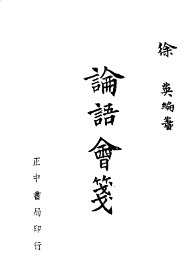 徐英編著
論語會箋
正中書局印行